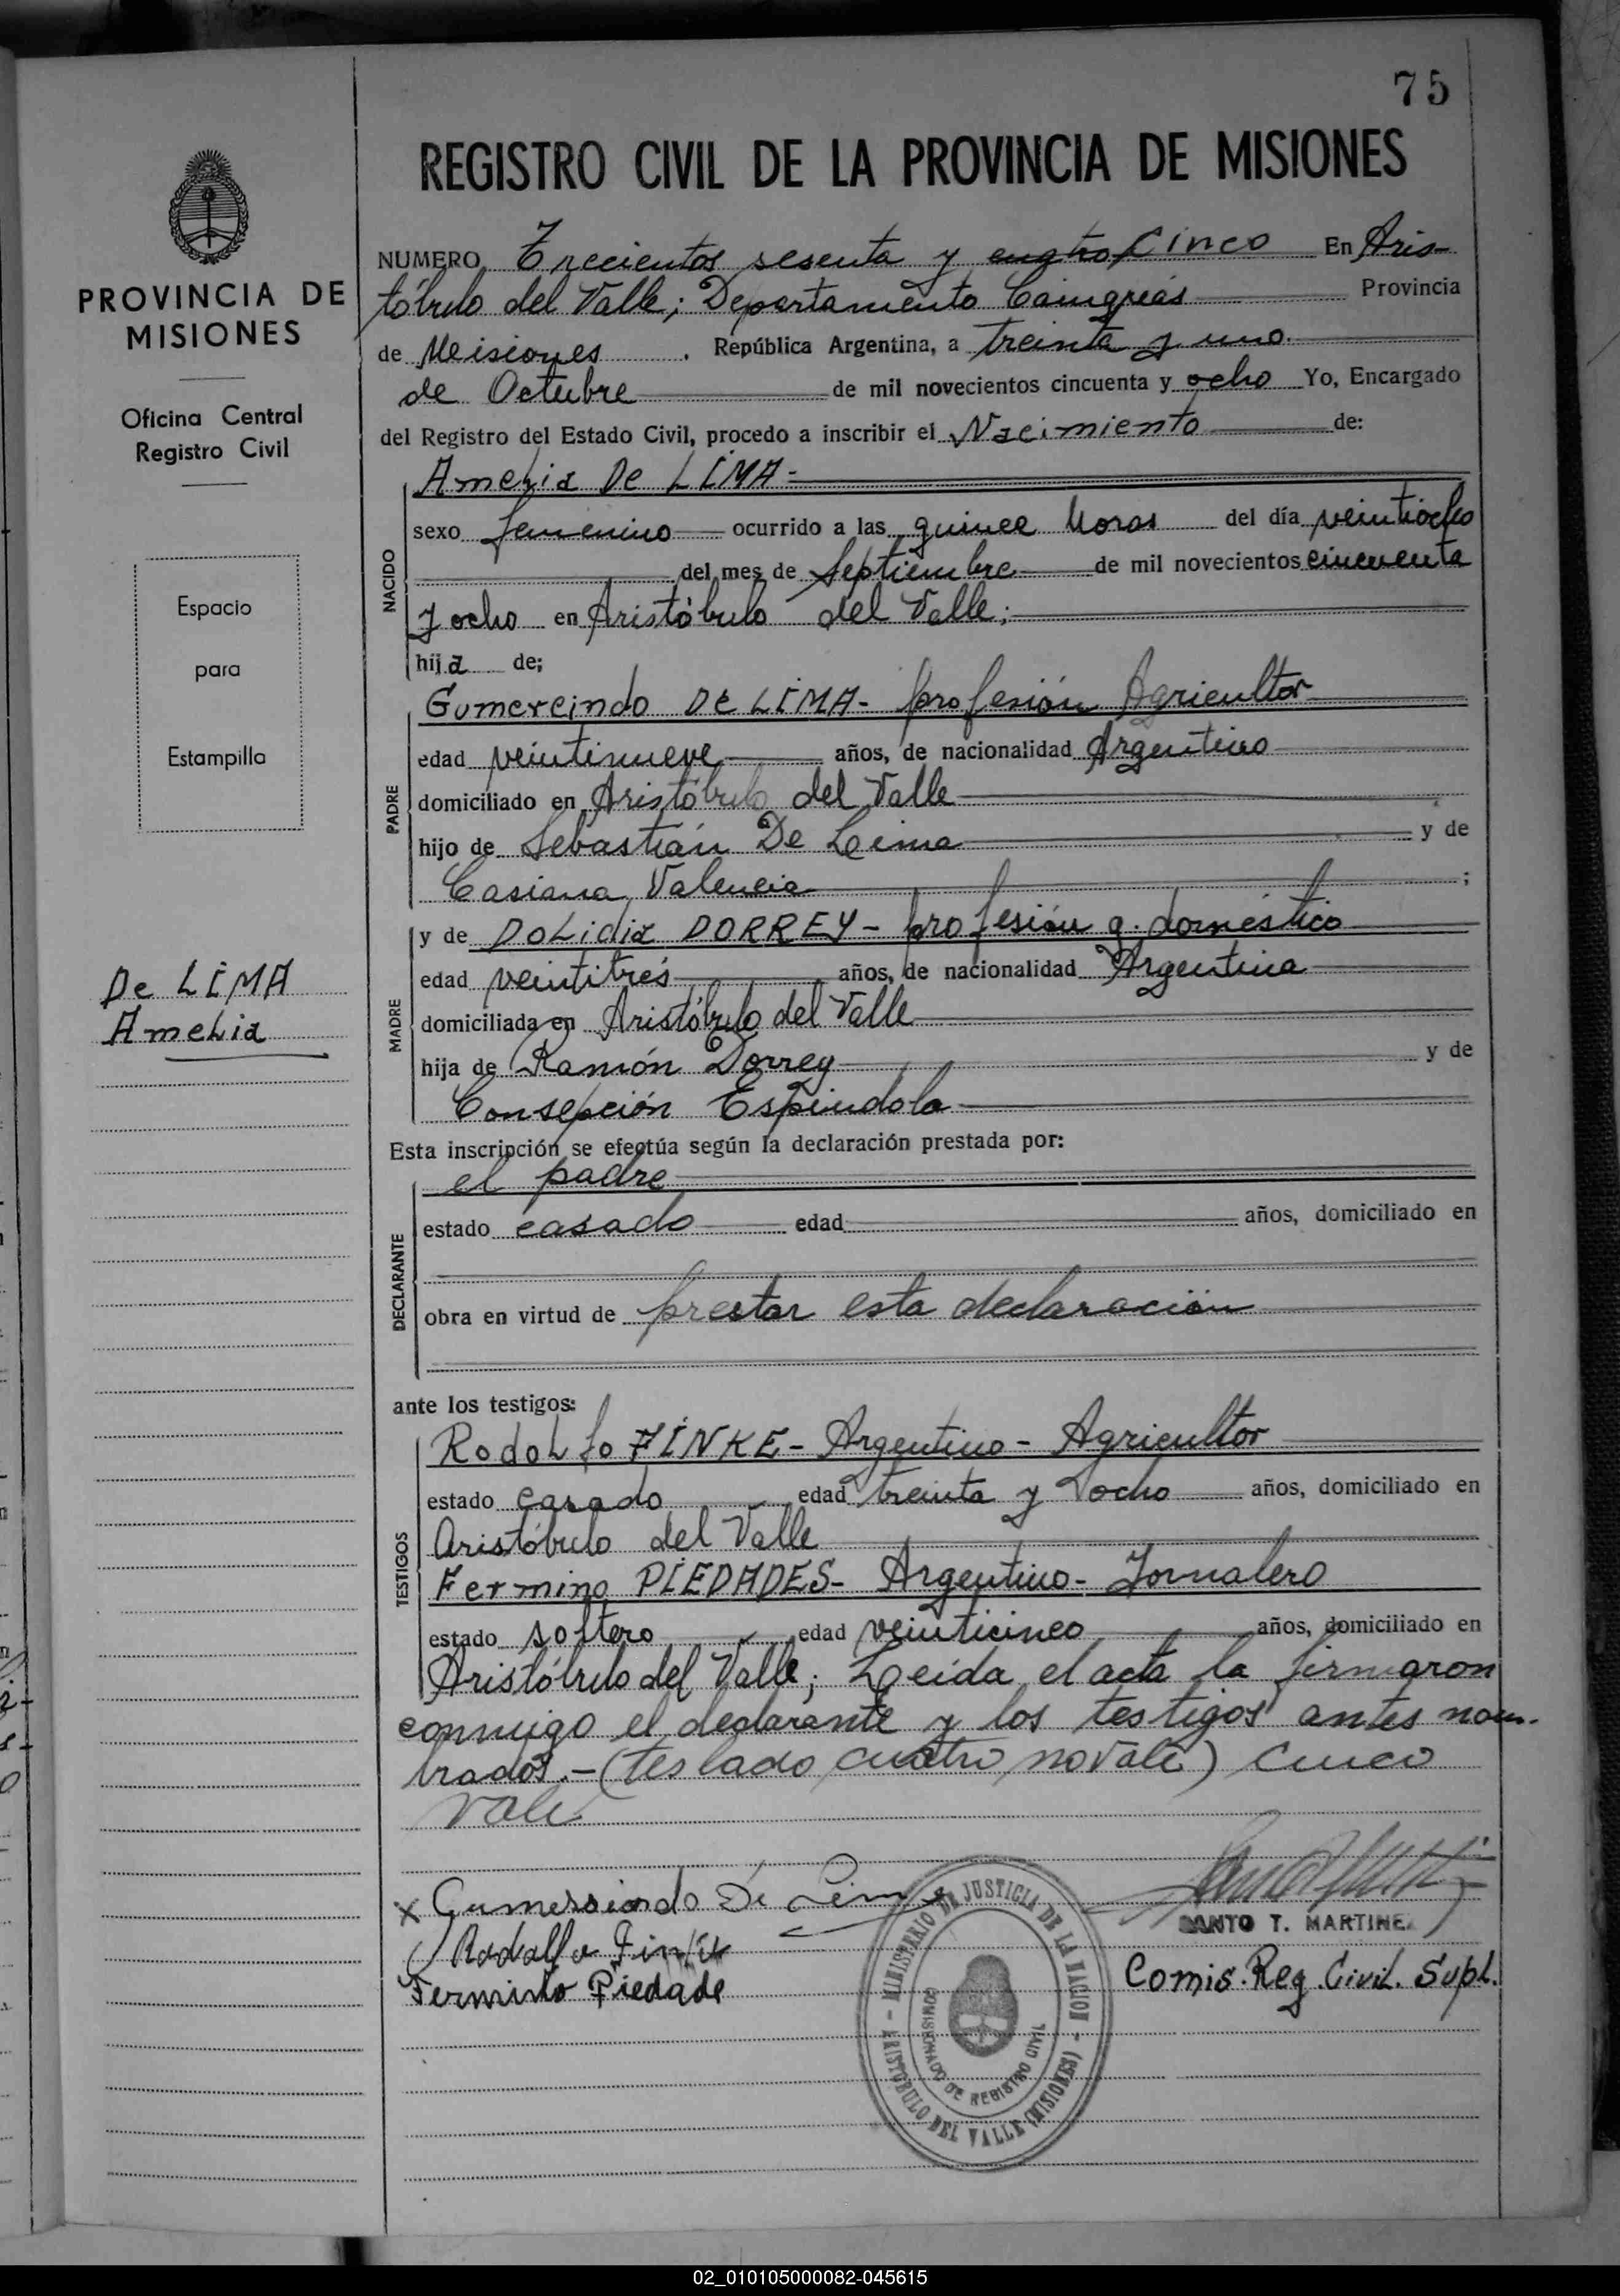 75
REGISTRO CIVIL DE LA PROVINCIA DE MISIONES
PROVINCIA DE
MISIONES
Oficina Central
Registro Civil
Espacio
para
Estampilla
De LIMA
Amelia
NUMERO Trecientos sesenta y cuatro cinco En Aris-
tóbulo del Valle; Departamento Cainguás Provincia
de Misiones. República Argentina, a treinta y uno
de Octubre de mil novecientos cincuenta y ocho Yo, Encargado
del Registro del Estado Civil, procedo a inscribir el Nacimiento de:
NACIDO
Amelia De LIMA-
sexo femenino ocurrido a las quince horas del día veintiocho
del mes de Septiembre de mil novecientos cincuenta
y ocho en Aristóbulo del Valle;
hija de;
PADRE
Gumercindo De LIMA- profesión Agricultor
edad veintinueve años, de nacionalidad Argentino
domiciliado en Aristóbulo del Valle
hijo de Sebastián De Lima y de
Casiana Valencia ;
MADRE
y de DoLidia DORREY- profesión q. doméstico
edad veintitrés años, de nacionalidad Argentina
domiciliada en Aristóbulo del Valle
hija de Ramón Dorrey y de
Consepción Espindola
Esta inscripción se efectúa según la declaración prestada por:
DECLARANTE
el padre
estado casado edad años, domiciliado en
obra en virtud de prestar esta declaración
ante los testigos:
TESTIGOS
Rodolfo FINKE- Argentino- Agricultor
estado casado edad treinta y ocho años, domiciliado en
Aristóbulo del Valle
Fermino PIEDADES- Argentino- Jornalero
estado soltero edad veinticinco años, domiciliado en
Aristóbulo del Valle; Leida el acta la firmaron
conmigo el declarante y los testigos antes nom-
brados.- (teslado cuatro no vale) cinco
vale
x Gumerssindo De Lima
Rodolfo Finke
Fermino Piedade
SANTO T. MARTINEZ
Comis. Reg Civil. Supl.
MINISTERIO DE JUSTICIA DE LA NACION - ARISTOBULO DEL VALLE (MISIONES) -
COMISIONADO DE REGISTRO CIVIL
02_010105000082-045615